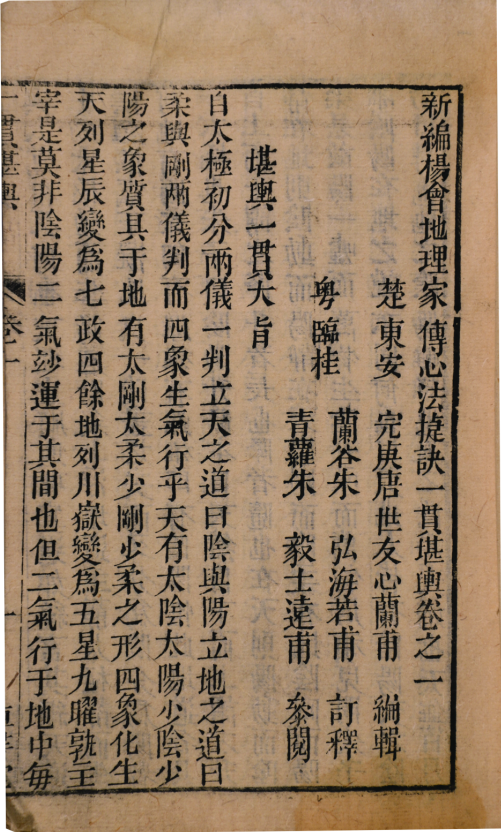 新編楊會地理家傳心法捷訣一貫堪輿卷之一
楚東安　完庚唐世友心蘭甫　編輯
粵臨桂　蘭谷朱　弘海若甫　訂釋
青蘿朱　毅士遠甫　叅閱
堪輿一貫大旨
自太極初分兩儀一判立天之道曰陰與陽立地之道曰
柔與剛兩儀判而四象生氣行乎天有太陰太陽少陰少
陽之象質具于地有太剛太柔少剛少柔之形四象化生
天列星辰變爲七政四餘地列川嶽變爲五星九曜孰主
宰是莫非陰陽二氣玅運于其間也但二氣行于地中每
一貫堪輿　卷一　一